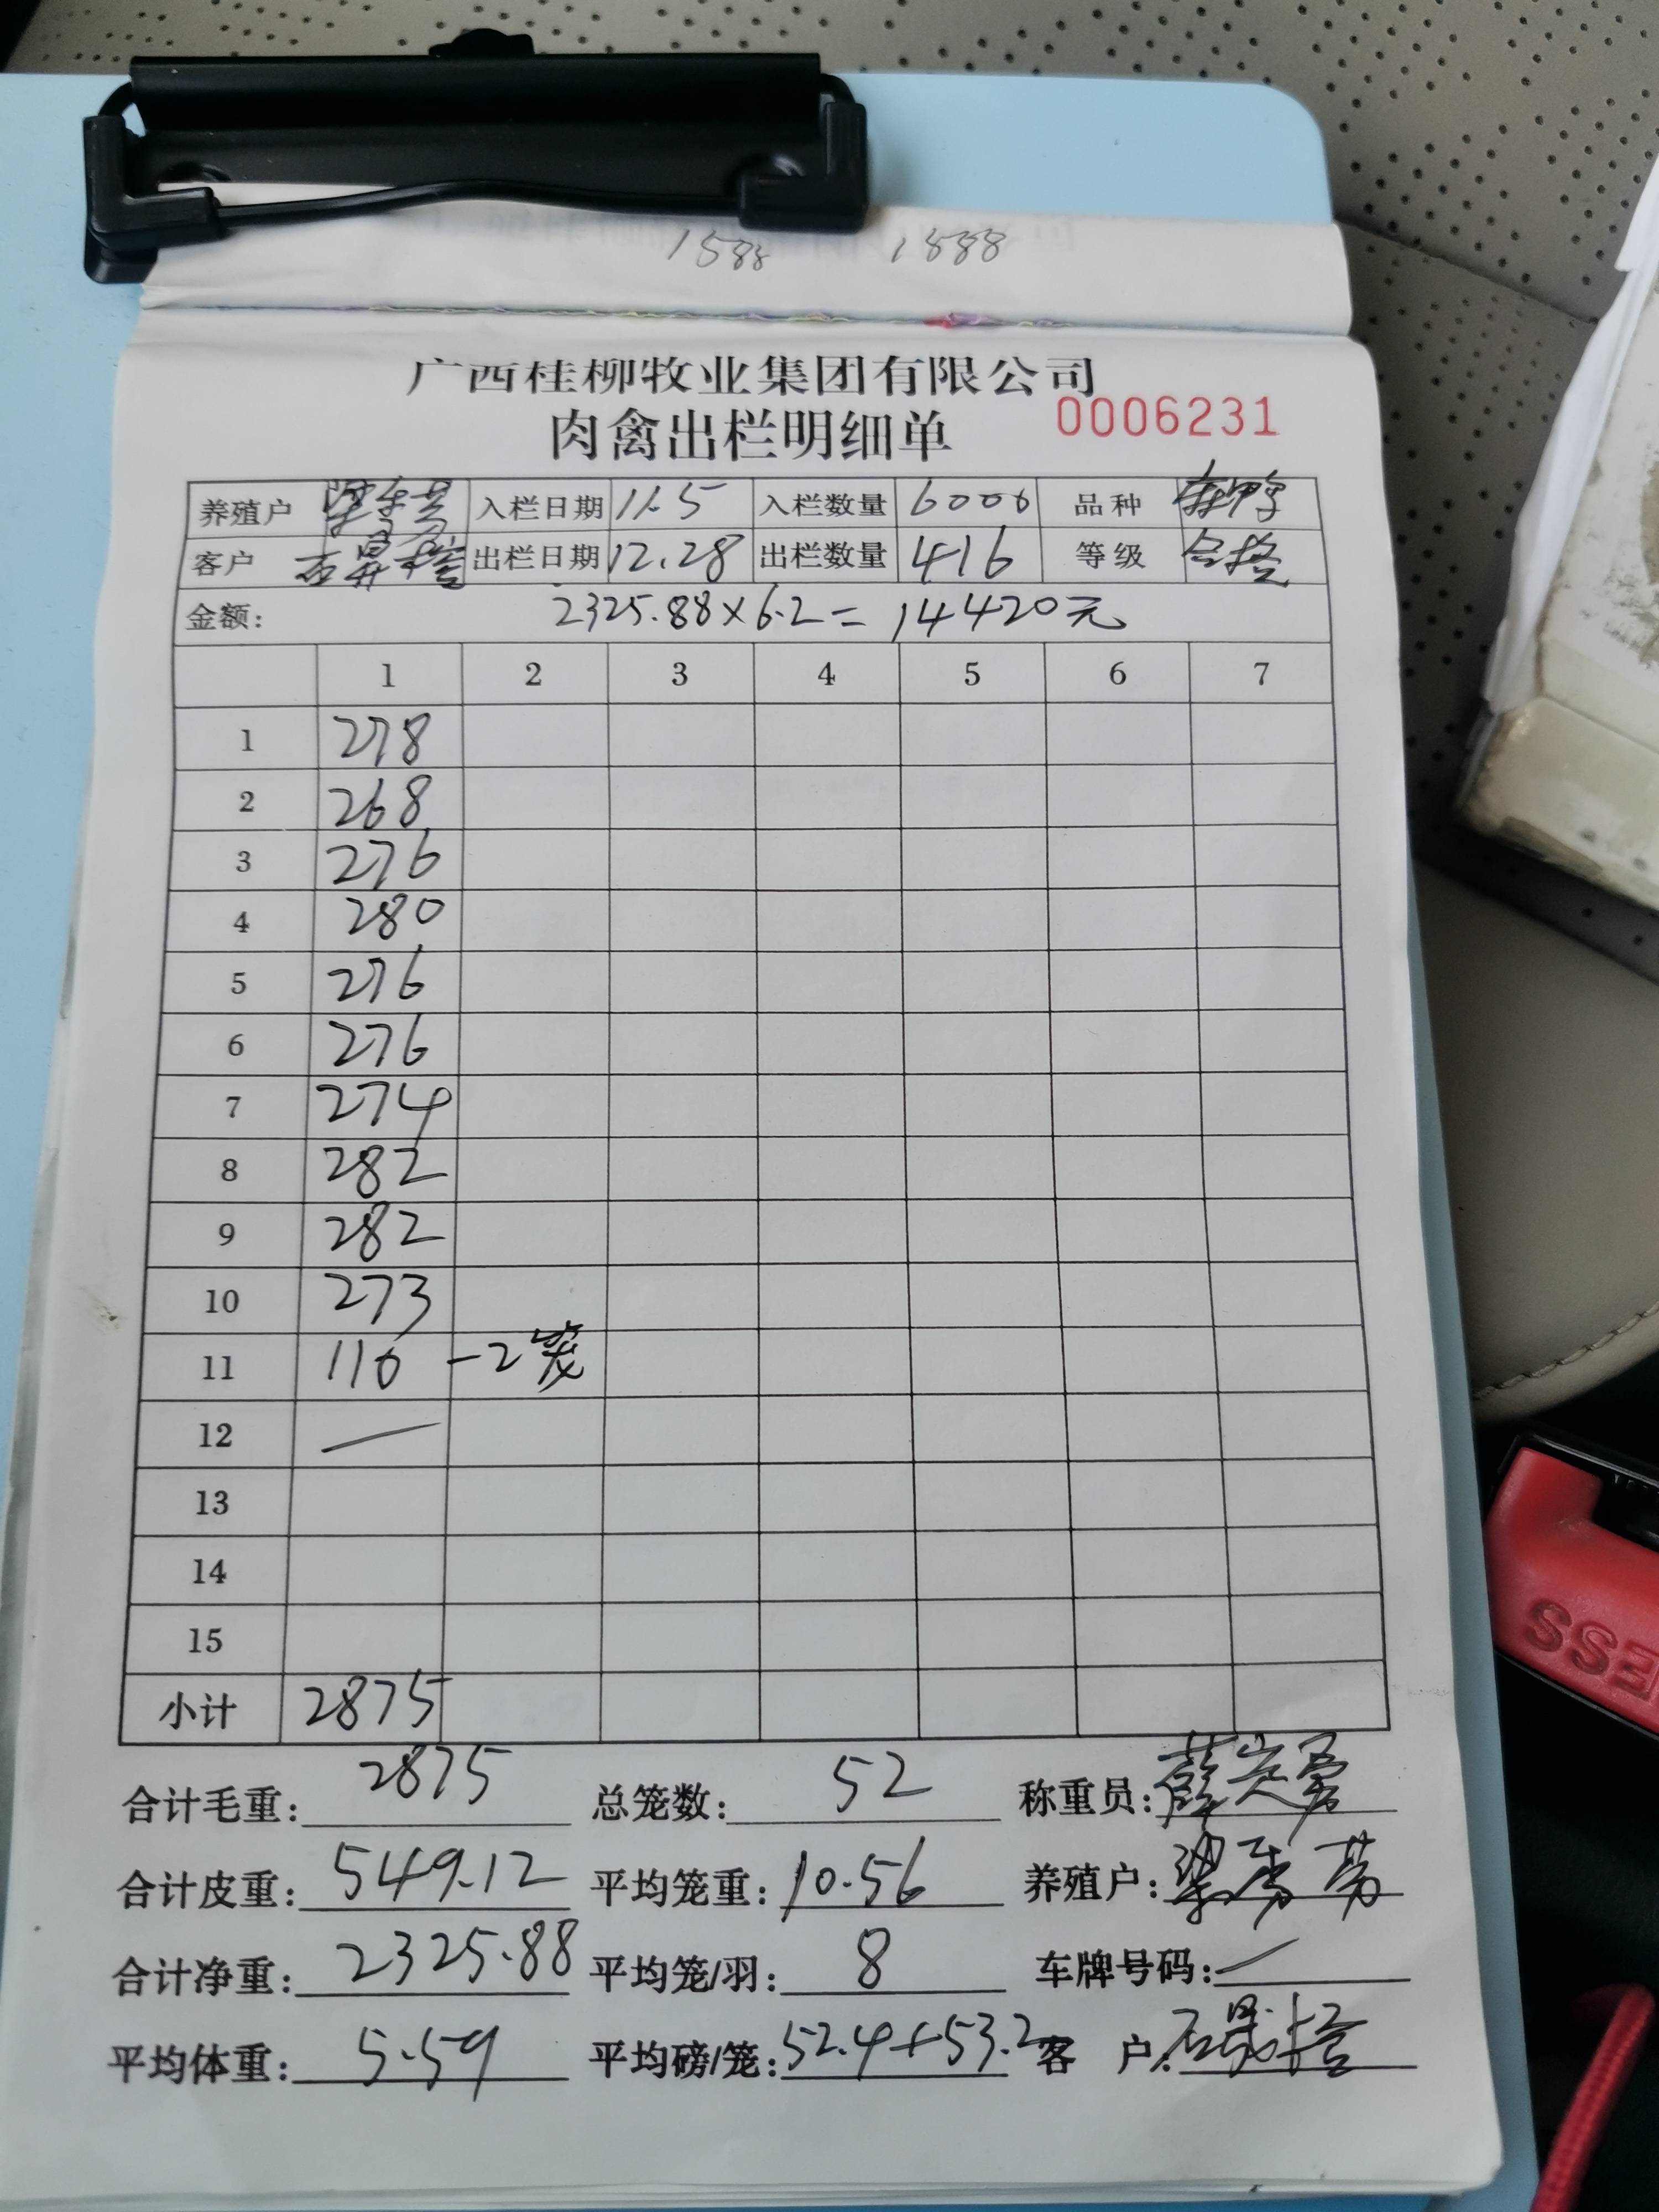 1588 1888
广西桂柳牧业集团有限公司
肉禽出栏明细单 0006231
养殖户 梁秀芳 入栏日期 11.5 入栏数量 6000 品种
客户 出栏日期 12.28 出栏数量 416 等级 合格
金额: 2325.88×6.2=14420元
1 2 3 4 5 6 7
1 278
2 268
3 276
4 280
5 276
6 276
7 274
8 282
9 282
10 273
11 110 -2笼
12 —
13
14
15
小计 2875
合计毛重: 2875 总笼数: 52 称重员:
合计皮重: 549.12 平均笼重: 10.56 养殖户: 梁秀芳
合计净重: 2325.88 平均笼/羽: 8 车牌号码: —
平均体重: 5.59 平均磅/笼: 52.4+53.2 客 户:
ESS